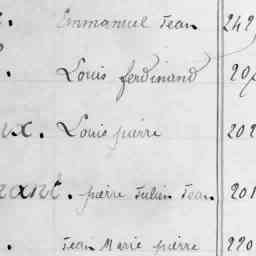 Emmanuel Jean 242
Louis ferdinand 20
ux. Louis pierre 202
rant. pierre Julien Jean 201
Jean Marie pierre 220